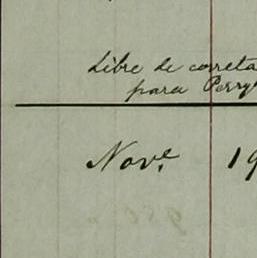 Libre de correta
para Perry
Nov.e 19